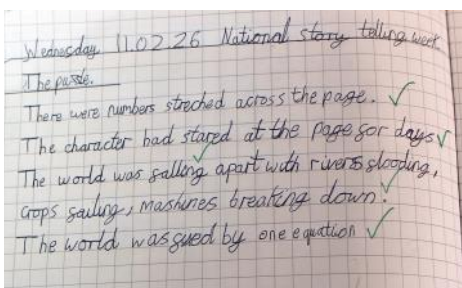 Wednesday 11.02.26 National story telling week
The puzzle.
There were numbers streched across the page.
The character had stared at the page for days
The world was falling apart with rivers flooding,
crops failing, mashines breaking down.
The world was fued by one equation